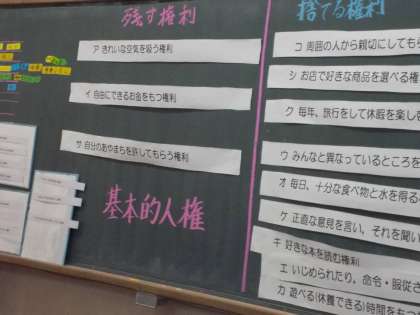 残す権利
ア きれいな空気を吸う権利
イ 自由にできるお金をもつ権利
サ 自分のあやまちを許してもらう権利
基本的人権
捨てる権利
コ 周囲の人から親切にしてもら
シ お店で好きな商品を選べる権
ク 毎年、旅行をして休暇を楽し
ウ みんなと異なっているところを
オ 毎日、十分な食べ物と水を得る
ケ 正直な意見を言い、それを聞い
キ 好きな本を読む権利
エ いじめられたり、命令・服従さ
カ 遊べる(休養できる)時間をも